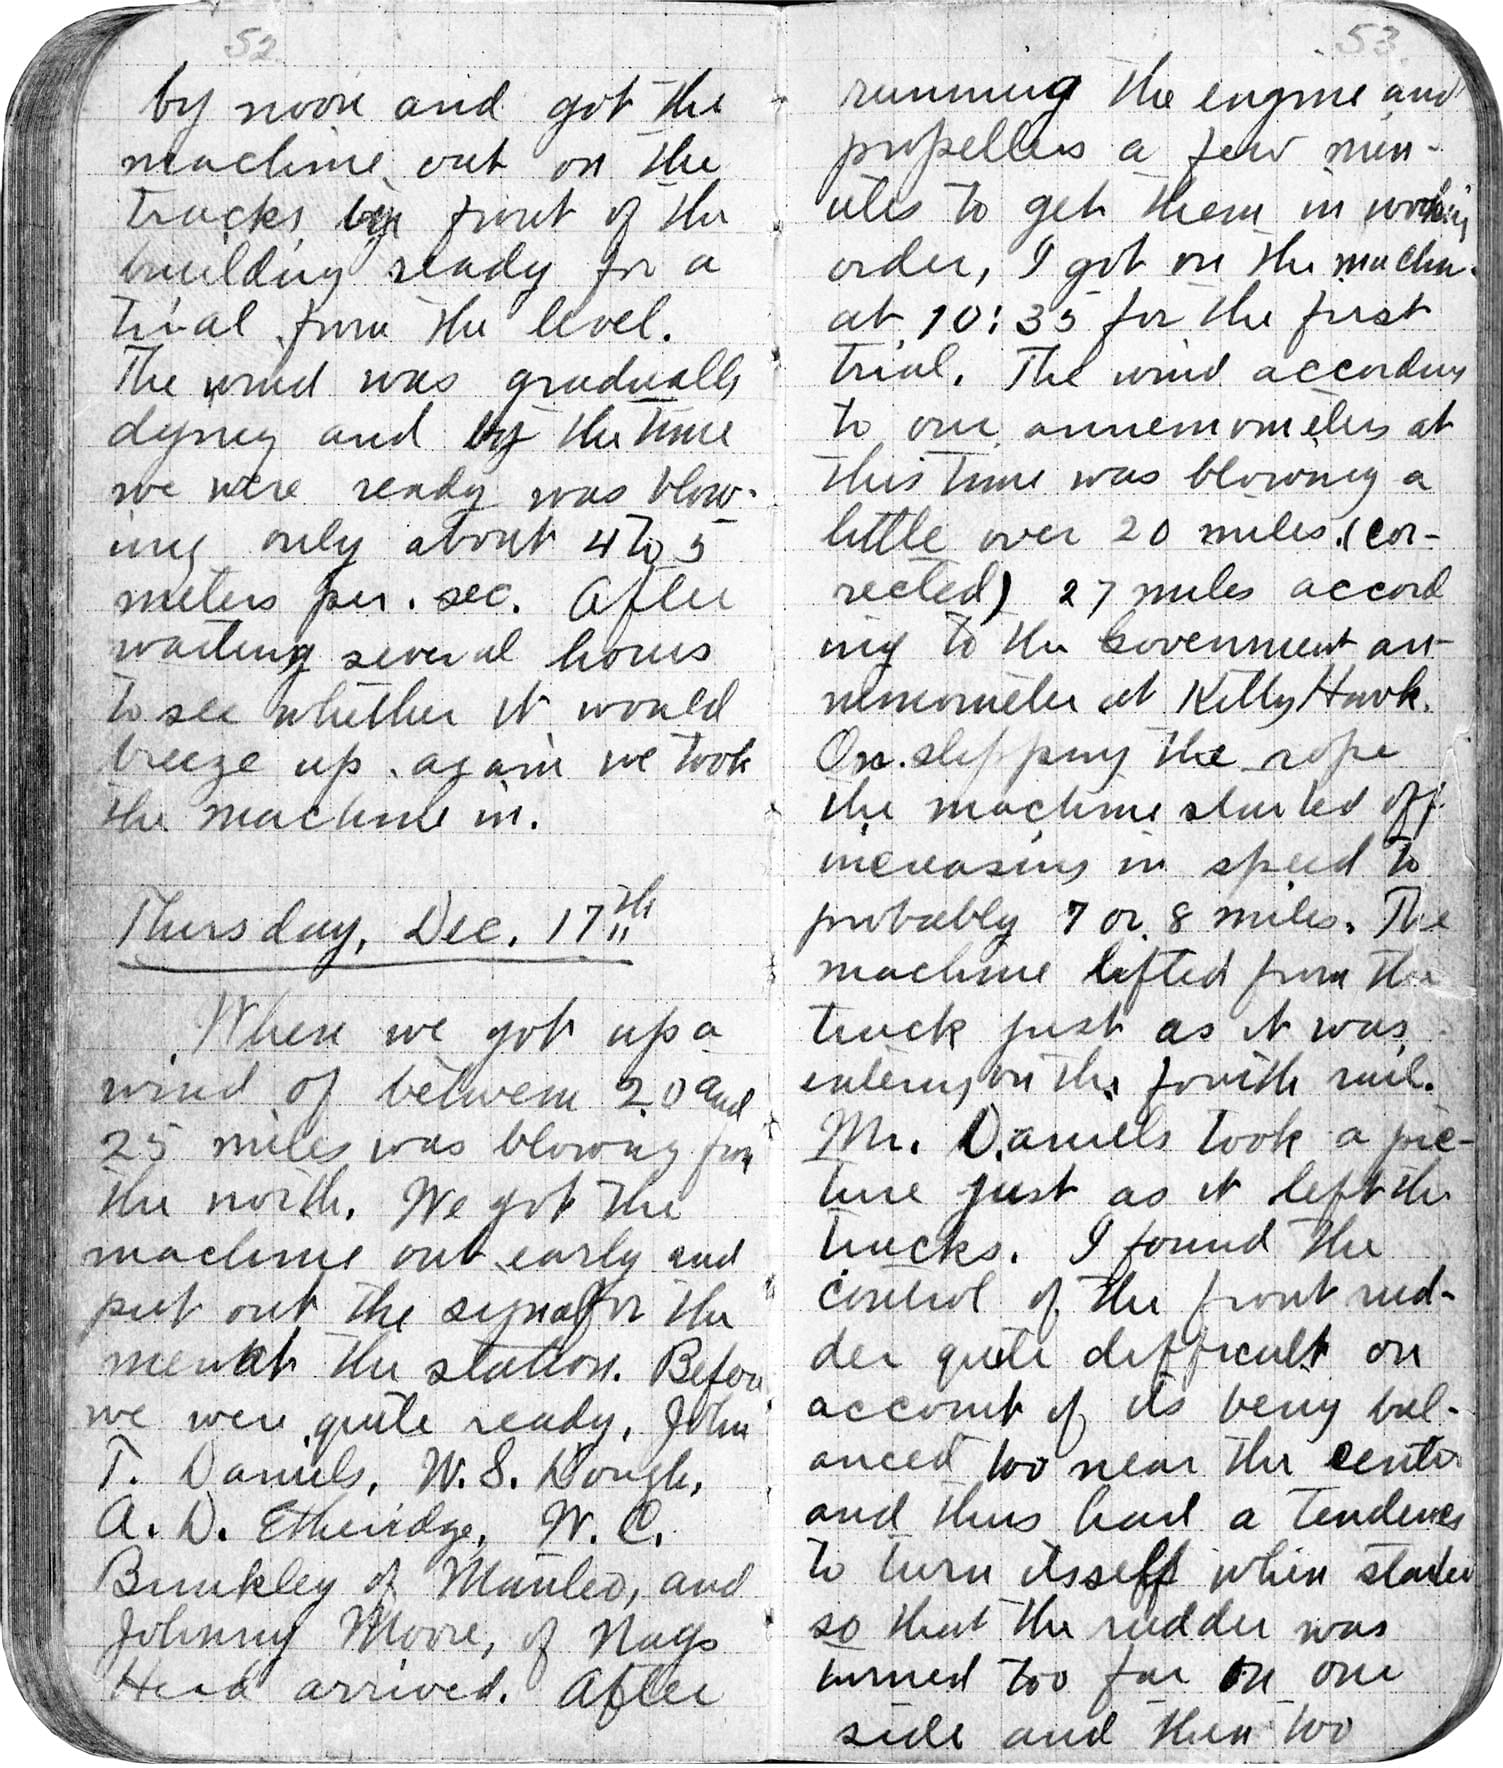 52
by noon and got the
machine out on the
tracks in front of the
building ready for a
trial from the level.
The wind was gradually
dying and by the time
we were ready was blow-
ing only about 4 to 5
meters per. sec. After
waiting several hours
to see whether it would
breeze up again we took
the machine in.
Thursday, Dec. 17th
When we got up a
wind of between 20 and
25 miles was blowing from
the north. We got the
machine out early and
put out the signal for the
men at the station. Before
we were quite ready, John
T. Daniels, W. S. Dough,
A. D. Etheridge, W. C.
Brinkley of Manteo, and
Johnny Moore, of Nags
Head arrived. After
53
running the engine and
propellers a few min-
utes to get them in working
order, I got on the machine
at 10:35 for the first
trial. The wind according
to our annemometers at
this time was blowing a
little over 20 miles (cor-
rected) 27 miles accord
ing to the Government an-
nemometer at Kitty Hawk.
On slipping the rope
the machine started off
increasing in speed to
probably 7 or 8 miles. The
machine lifted from the
truck just as it was
entering on the fourth rail.
Mr. Daniels took a pic-
ture just as it left the
tracks. I found the
control of the front rud-
der quite difficult on
account of its being bal-
anced too near the center
and thus had a tendency
to turn itself when started
so that the rudder was
turned too far on one
side and then too